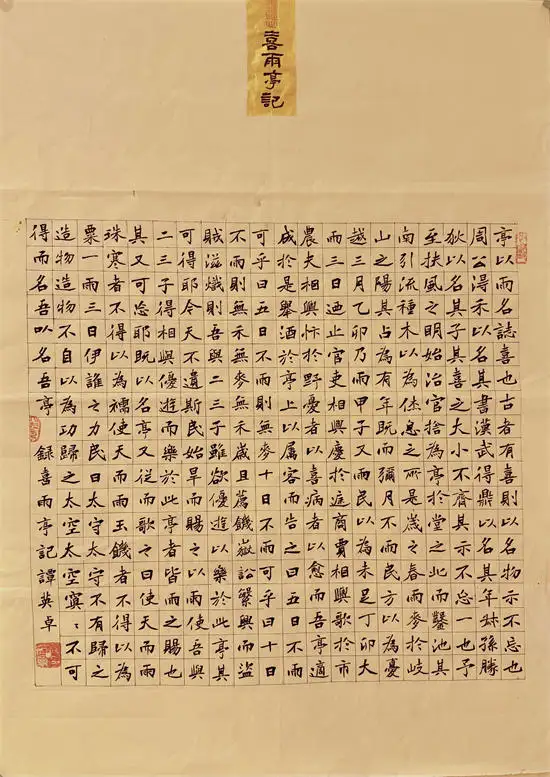 喜雨亭記
亭以雨名誌喜也古者有喜則以名物示不忘也
周公得禾以名其書漢武得鼎以名其年叔孫勝
狄以名其子其喜之大小不齊其示不忘一也予
至扶風之明始治官捨為亭於堂之北而鑿池其
南引流種木以為休息之所是歲之春雨麥於岐
山之陽其占為有年既而彌月不雨民方以為憂
越三月乙卯乃雨甲子又雨民以為未足丁卯大
雨三日迺止官吏相與慶於庭商賈相與歌於市
農夫相與忭於野憂者以喜病者以愈而吾亭適
成於是舉酒於亭上以属客而告之曰五日不雨
可乎曰五日不雨則無麥十日不雨可乎曰十日
不雨則無禾無麥無禾歲薦饑嶽訟繁興而盜
賊滋熾則吾與二三子雖欲優遊以樂於此亭其
可得耶今天不遺斯民始旱而賜之以雨使吾與
二三子得相與優遊而樂於此亭者皆雨之賜也
其又可忘耶既以名亭又從而歌之曰使天而雨
珠寒者不得以為襦使天而雨玉饑者不得以為
粟一雨三日伊誰之力民曰太守太守不有歸之
造物造物不自以為功歸之太空太空冥々不可
得而名吾以名吾亭 錄喜雨亭記譚英卓